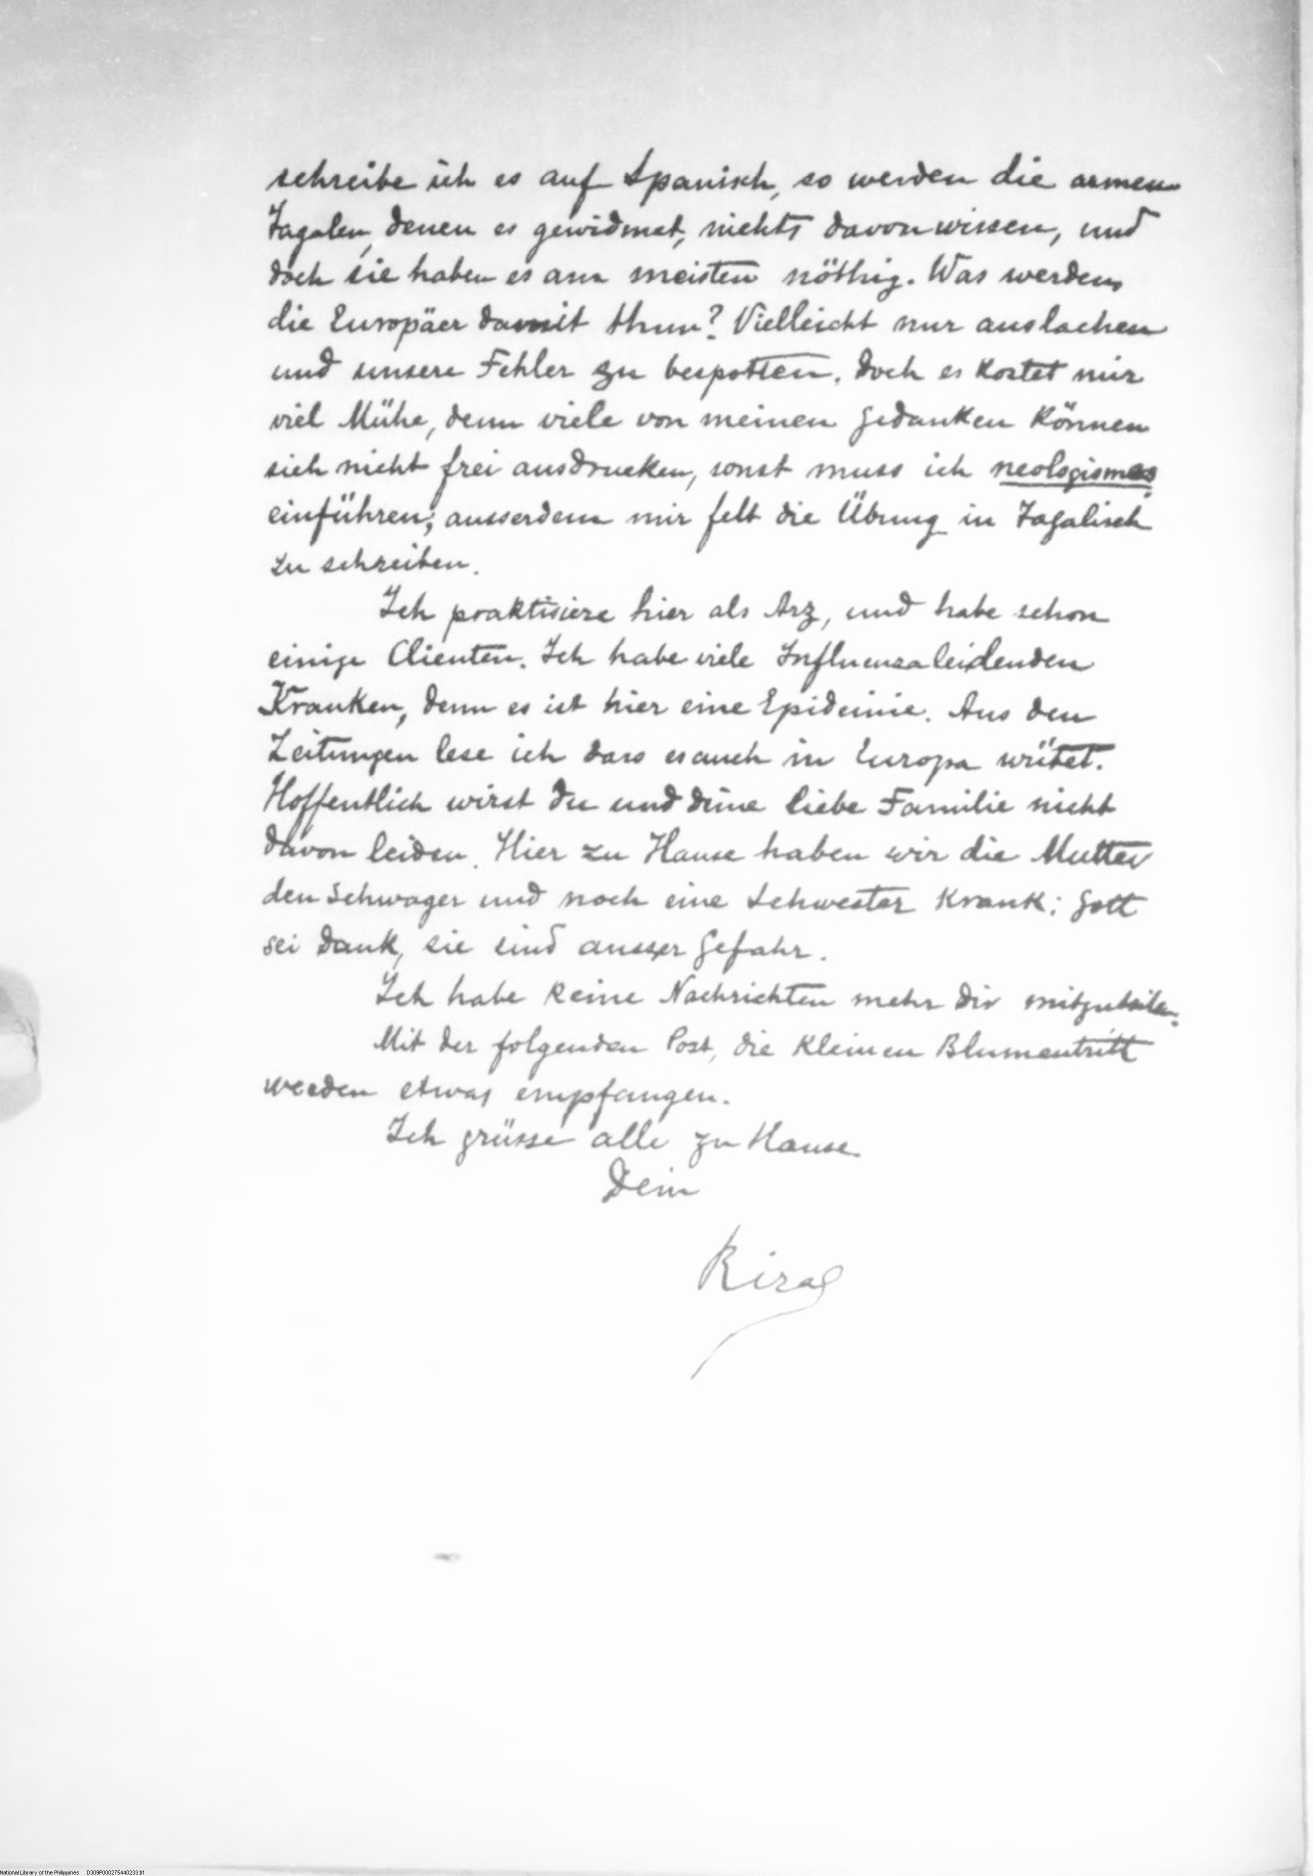 schreibe ich es auf Spanisch, so werden die armen
Tagalen, denen es gewidmet, nichts davon wissen, und
doch sie haben es am meisten nöthig. Was werden
die Europäer damit thun? Vielleicht nur auslachen
und unsere Fehler zu bespotten. Doch es kostet mir
viel Mühe, denn viele von meinen Gedanken können
sich nicht frei ausdrucken, sonst muss ich neologismes
einführen; ausserdem mir felt die Übung in Tagalisch
zu schreiben.
Ich praktisiere hier als Arz, und habe schon
einige Clienten. Ich habe viele Influenzaleidenden
Kranken, denn es ist hier eine Epidemie. Aus den
Zeitungen lese ich dass es auch in Europa wütet.
Hoffentlich wirst du und deine liebe Familie nicht
davon leiden. Hier zu Hause haben wir die Mutter
den Schwager und noch eine Schwester krank: Gott
sei Dank, sie sind ausser Gefahr.
Ich habe keine Nachrichten mehr dir mitzuteilen.
Mit der folgenden Post, die kleinen Blumentritt
werden etwas empfangen.
Ich grüsse alle zu Hause
Dein
Rizal
National Library of the Philippines